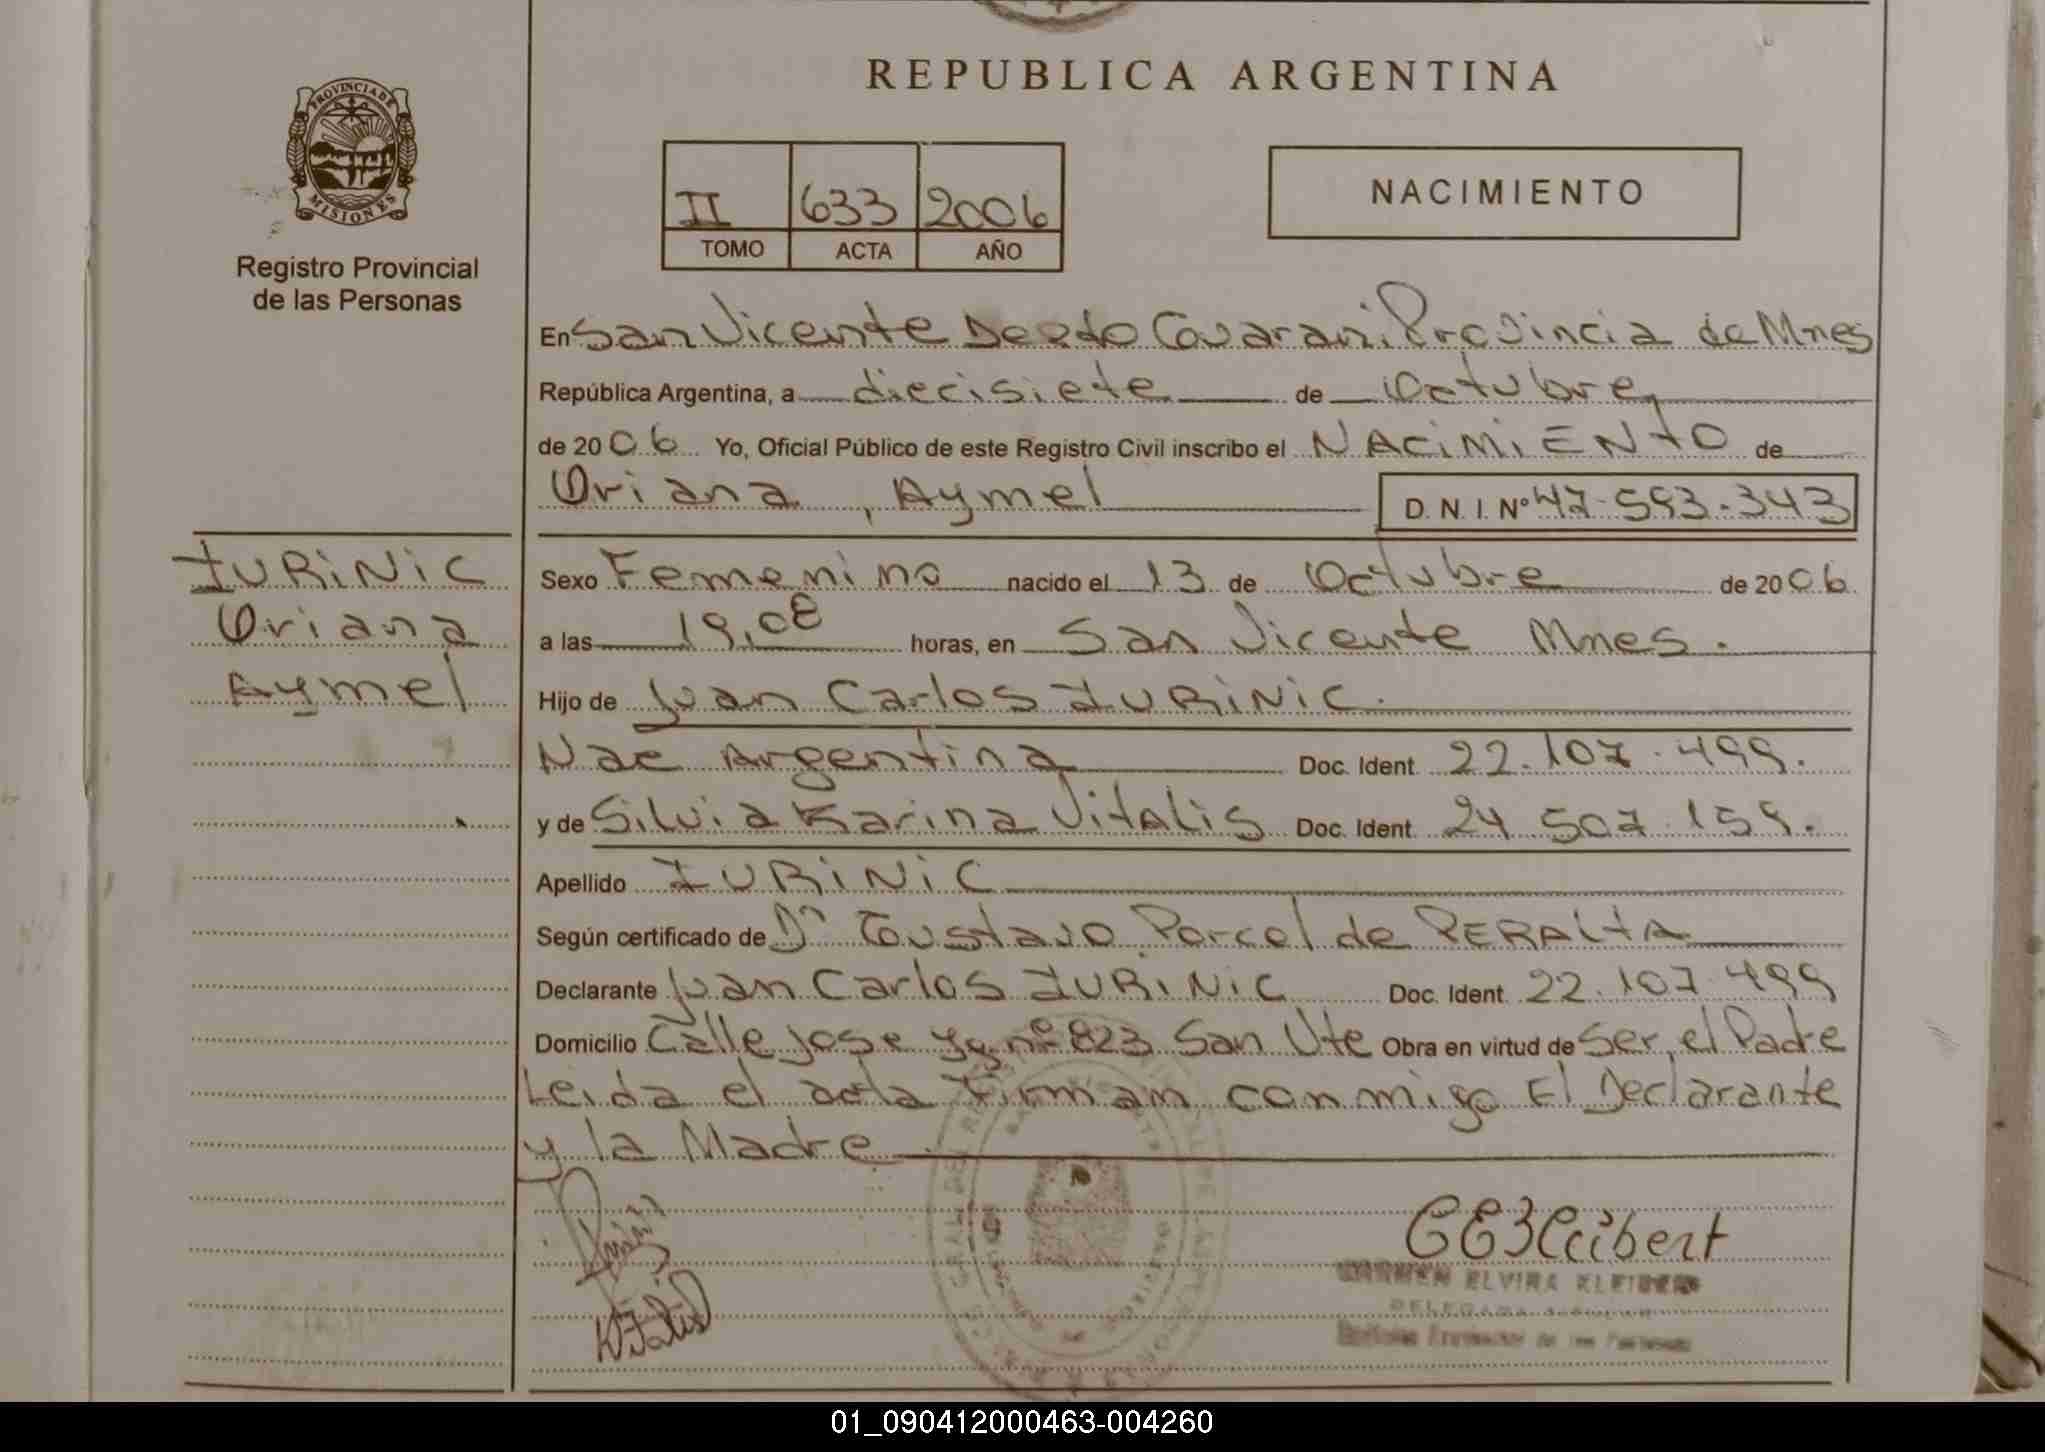 REPUBLICA ARGENTINA
PROVINCIA DE
MISIONES
Registro Provincial
de las Personas
II 633 2006
TOMO ACTA AÑO
NACIMIENTO
En San Vicente Depto Guarani Provincia de Mnes
República Argentina, a diecisiete de Octubre
de 2006 Yo, Oficial Público de este Registro Civil inscribo el NACIMIENTO de
Oriana, Aymel D. N. I. Nº 47.593.343
IURINIC
Oriana
Aymel
Sexo Femenino nacido el 13 de Octubre de 2006
a las 19,08 horas, en San Vicente Mnes.
Hijo de Juan Carlos IURINIC.
Nac Argentina Doc. Ident. 22.107.499.
y de Silvia Karina Vitalis Doc. Ident. 24 507.159.
Apellido IURINIC
Según certificado de Dr Gustavo Porcel de PERALTA
Declarante Juan Carlos IURINIC Doc. Ident. 22.107.499
Domicilio Calle Jose nº 823 San Vte Obra en virtud de Ser el Padre
Leida el acta Firman conmigo El Declarante
y la Madre
CARMEN ELVIRA KLEIBERT
01_090412000463-004260